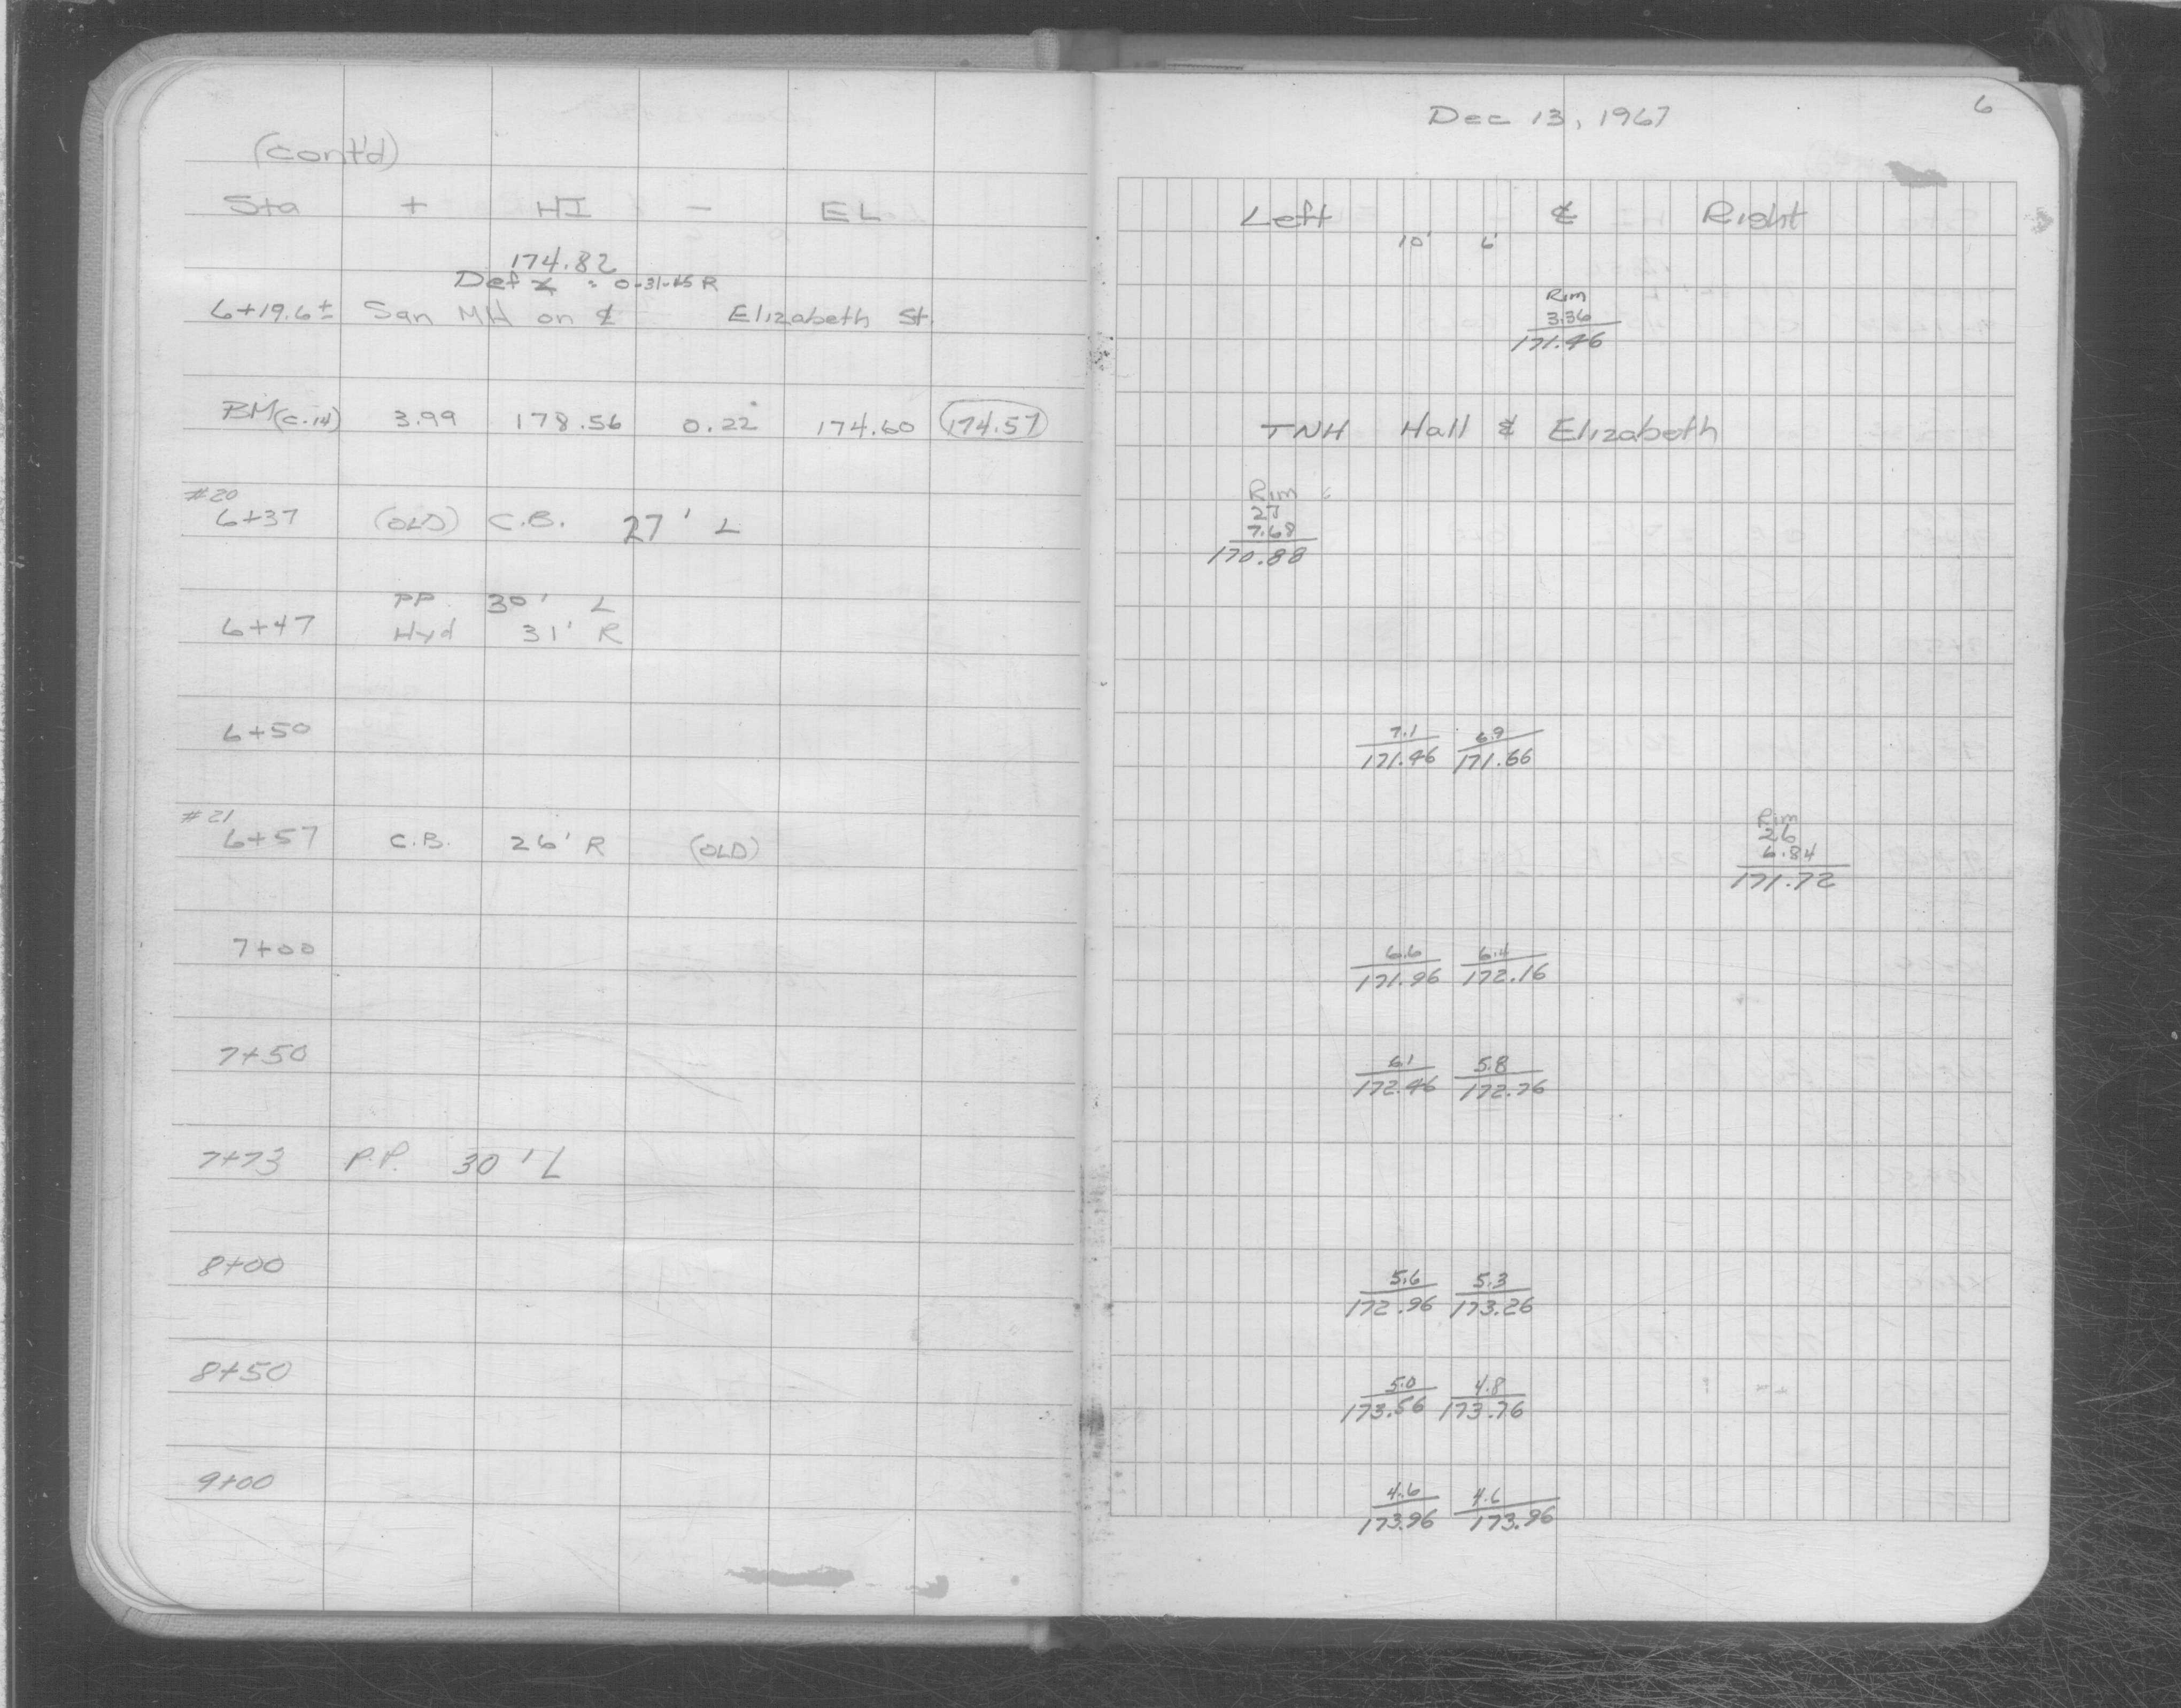 (cont'd)
Sta + HI - EL
174.82
Def ∡ = 0-31-45 R
6+19.6± San MH on ℄ Elizabeth St.
BM(C.14) 3.99 178.56 0.22 174.60 174.57
#20
6+37 (OLD) C.B. 27' L
PP 30' L
6+47 Hyd 31' R
6+50
#21
6+57 C.B. 26' R (OLD)
7+00
7+50
7+73 P.P. 30' L
8+00
8+50
9+00
Dec 13, 1967
6
Left ℄ Right
10' 6'
Rim
3.36
171.46
TNH Hall & Elizabeth
Rim
27
7.68
170.88
7.1 6.9
171.46 171.66
Rim
26
6.84
171.72
6.6 6.4
171.96 172.16
6.1 5.8
172.46 172.76
5.6 5.3
172.96 173.26
5.0 4.8
173.56 173.76
4.6 4.6
173.96 173.96